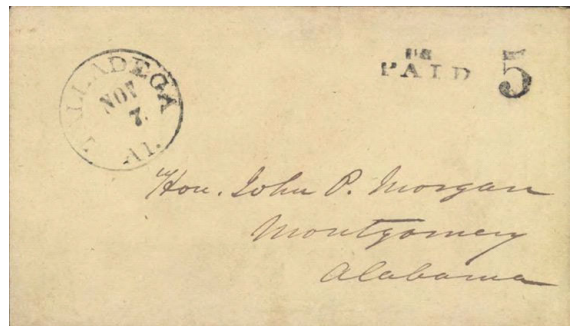 TALLADEGA
NOV
7.
Al.
PAID
5
Hon. John P. Morgan
Montgomery
Alabama